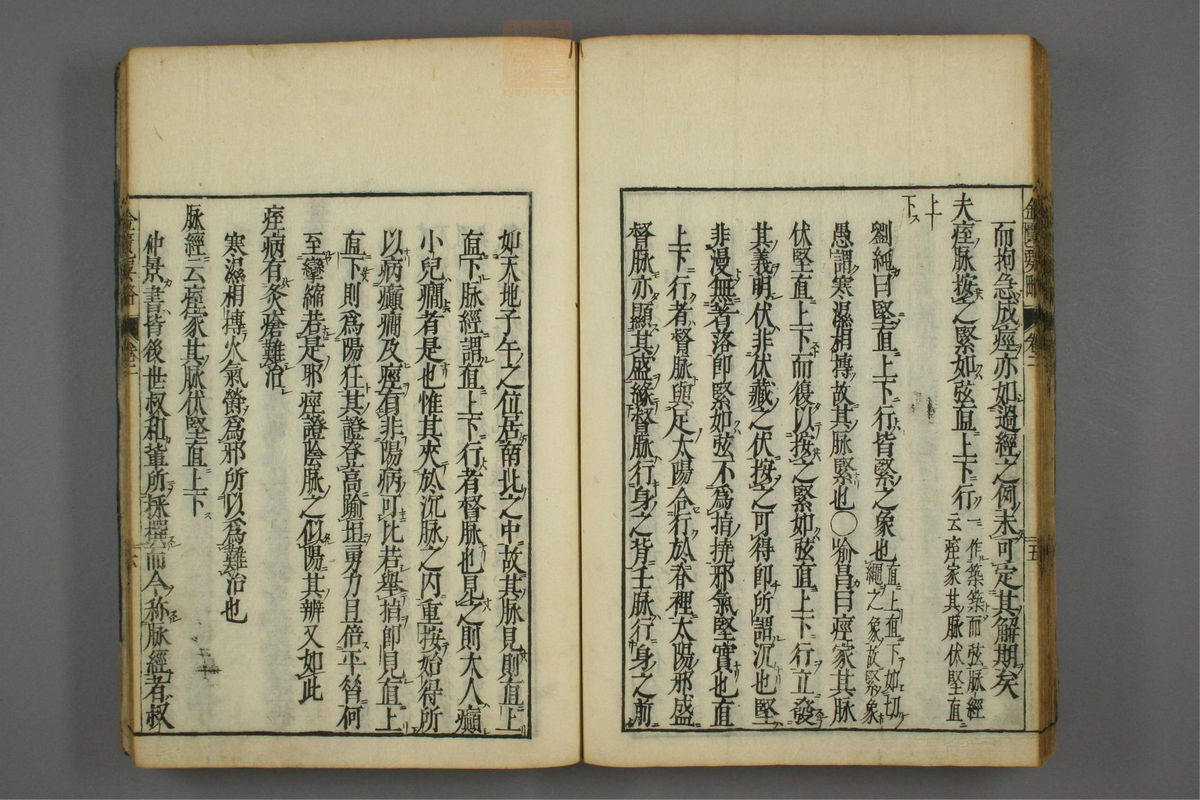 而拘急成痙亦如過經之例未可定其解期矣
夫痙脉按之緊如弦直上下行一作築築而弦脉經
云痙家其脉伏堅直
上下
劉純曰堅直上下行皆緊之象也直上直下如切
繩之象故緊象
愚謂寒濕相搏故其脉緊也〇喻昌曰痙家其脉
伏堅直上下而復以按之緊如弦直上下行立發
其義明伏非伏藏之伏按之可得即所謂沉也堅
非漫無着落即緊如弦不為指撓邪氣堅實也直
上下行者督脉與足太陽合行於脊裡太陽邪盛
督脉亦顯其盛緣督脉行身之背任脉行身之前
如天地子午之位居南北之中故其脉見則直上
直下脉經謂直上下行者督脉也見之則大人癲
小兒癇者是也惟其夾於沉脉之内重按始得所
以病癲癇及痙有非陽病可比若舉指即見直上
直下則為陽狂其證登高踰垣勇力且倍平昔何
至攣縮若是邪痙證陰脉之似陽其辨又如此
痙病有灸瘡難治
寒濕相搏火氣爲邪所以為難治也
脉經云痙家其脉伏堅直上下
仲景書皆後世叔和董所採撰而今称脉經者叔
金匱要略
卷二
五
金匱要略
卷二
六